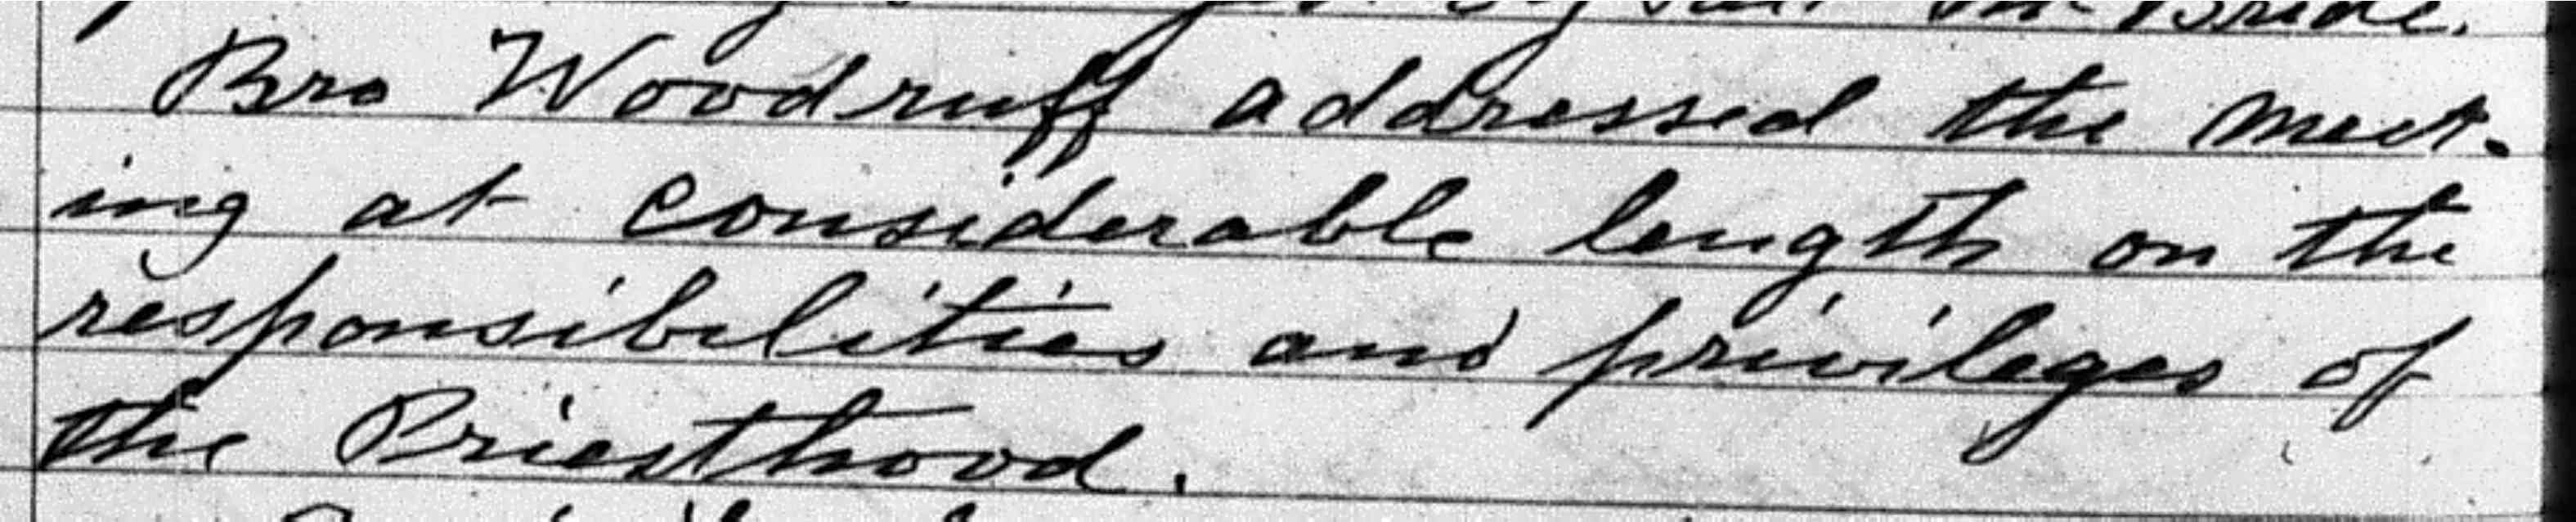 Bride.
Bro Woodruff addressed the meet-
ing at considerable length on the
responsibilities and privileges of
the Priesthood.